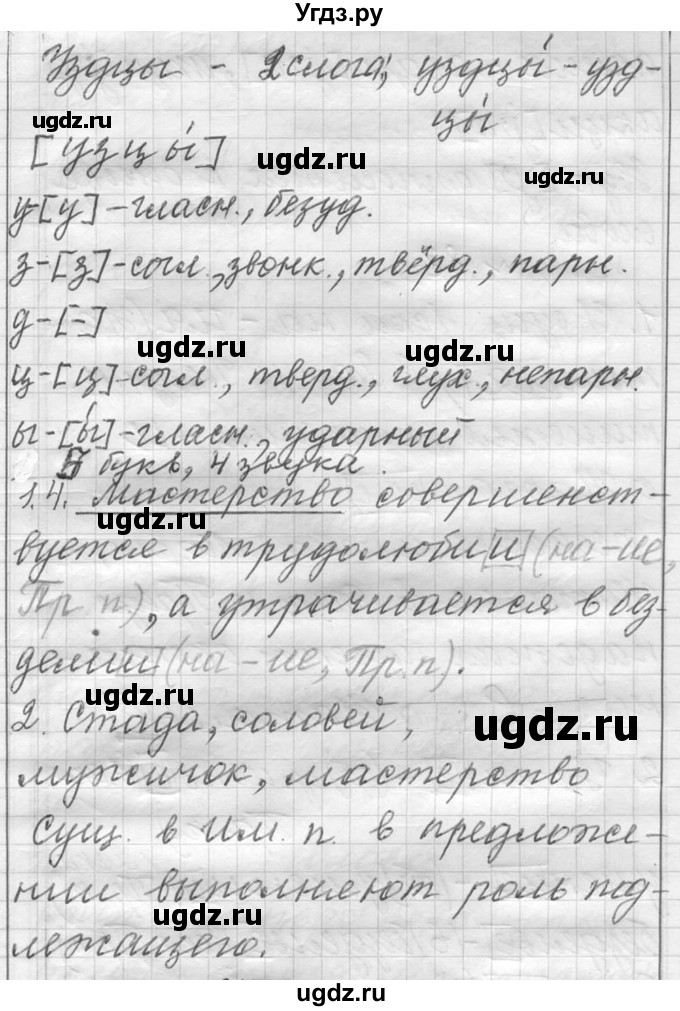 Угдз.ру
Уздцы - 2 слога, уздцы́ - узд-
цы́
ugdz.ru
[узцы́]
ugdz.ru
ugdz.ru
у-[у]-гласн., безуд.
з-[з]-согл., звонк., твёрд., парн.
д-[-]
ugdz.ru
ugdz.ru
ц-[ц]-согл., тверд., глух., непарн.
ы-[ы́]-гласн., ударный
5 букв, 4 звука.
1.4. Мастерство совершенст-
ugdz.ru
вуется в трудолюбии (на-ие,
Пр. п.), а утрачивается в без-
делии (на-ие, Пр. п).
ugdz.ru
2. Стада, соловей,
ugdz.ru
мужичок, мастерство
Сущ. в Им. п. в предложе-
нии выполняют роль под-
ugdz.ru
лежащего.
ugdz.ru